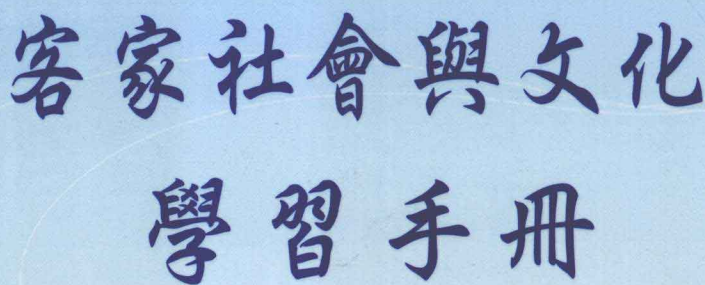 客家社會與文化
學習手冊